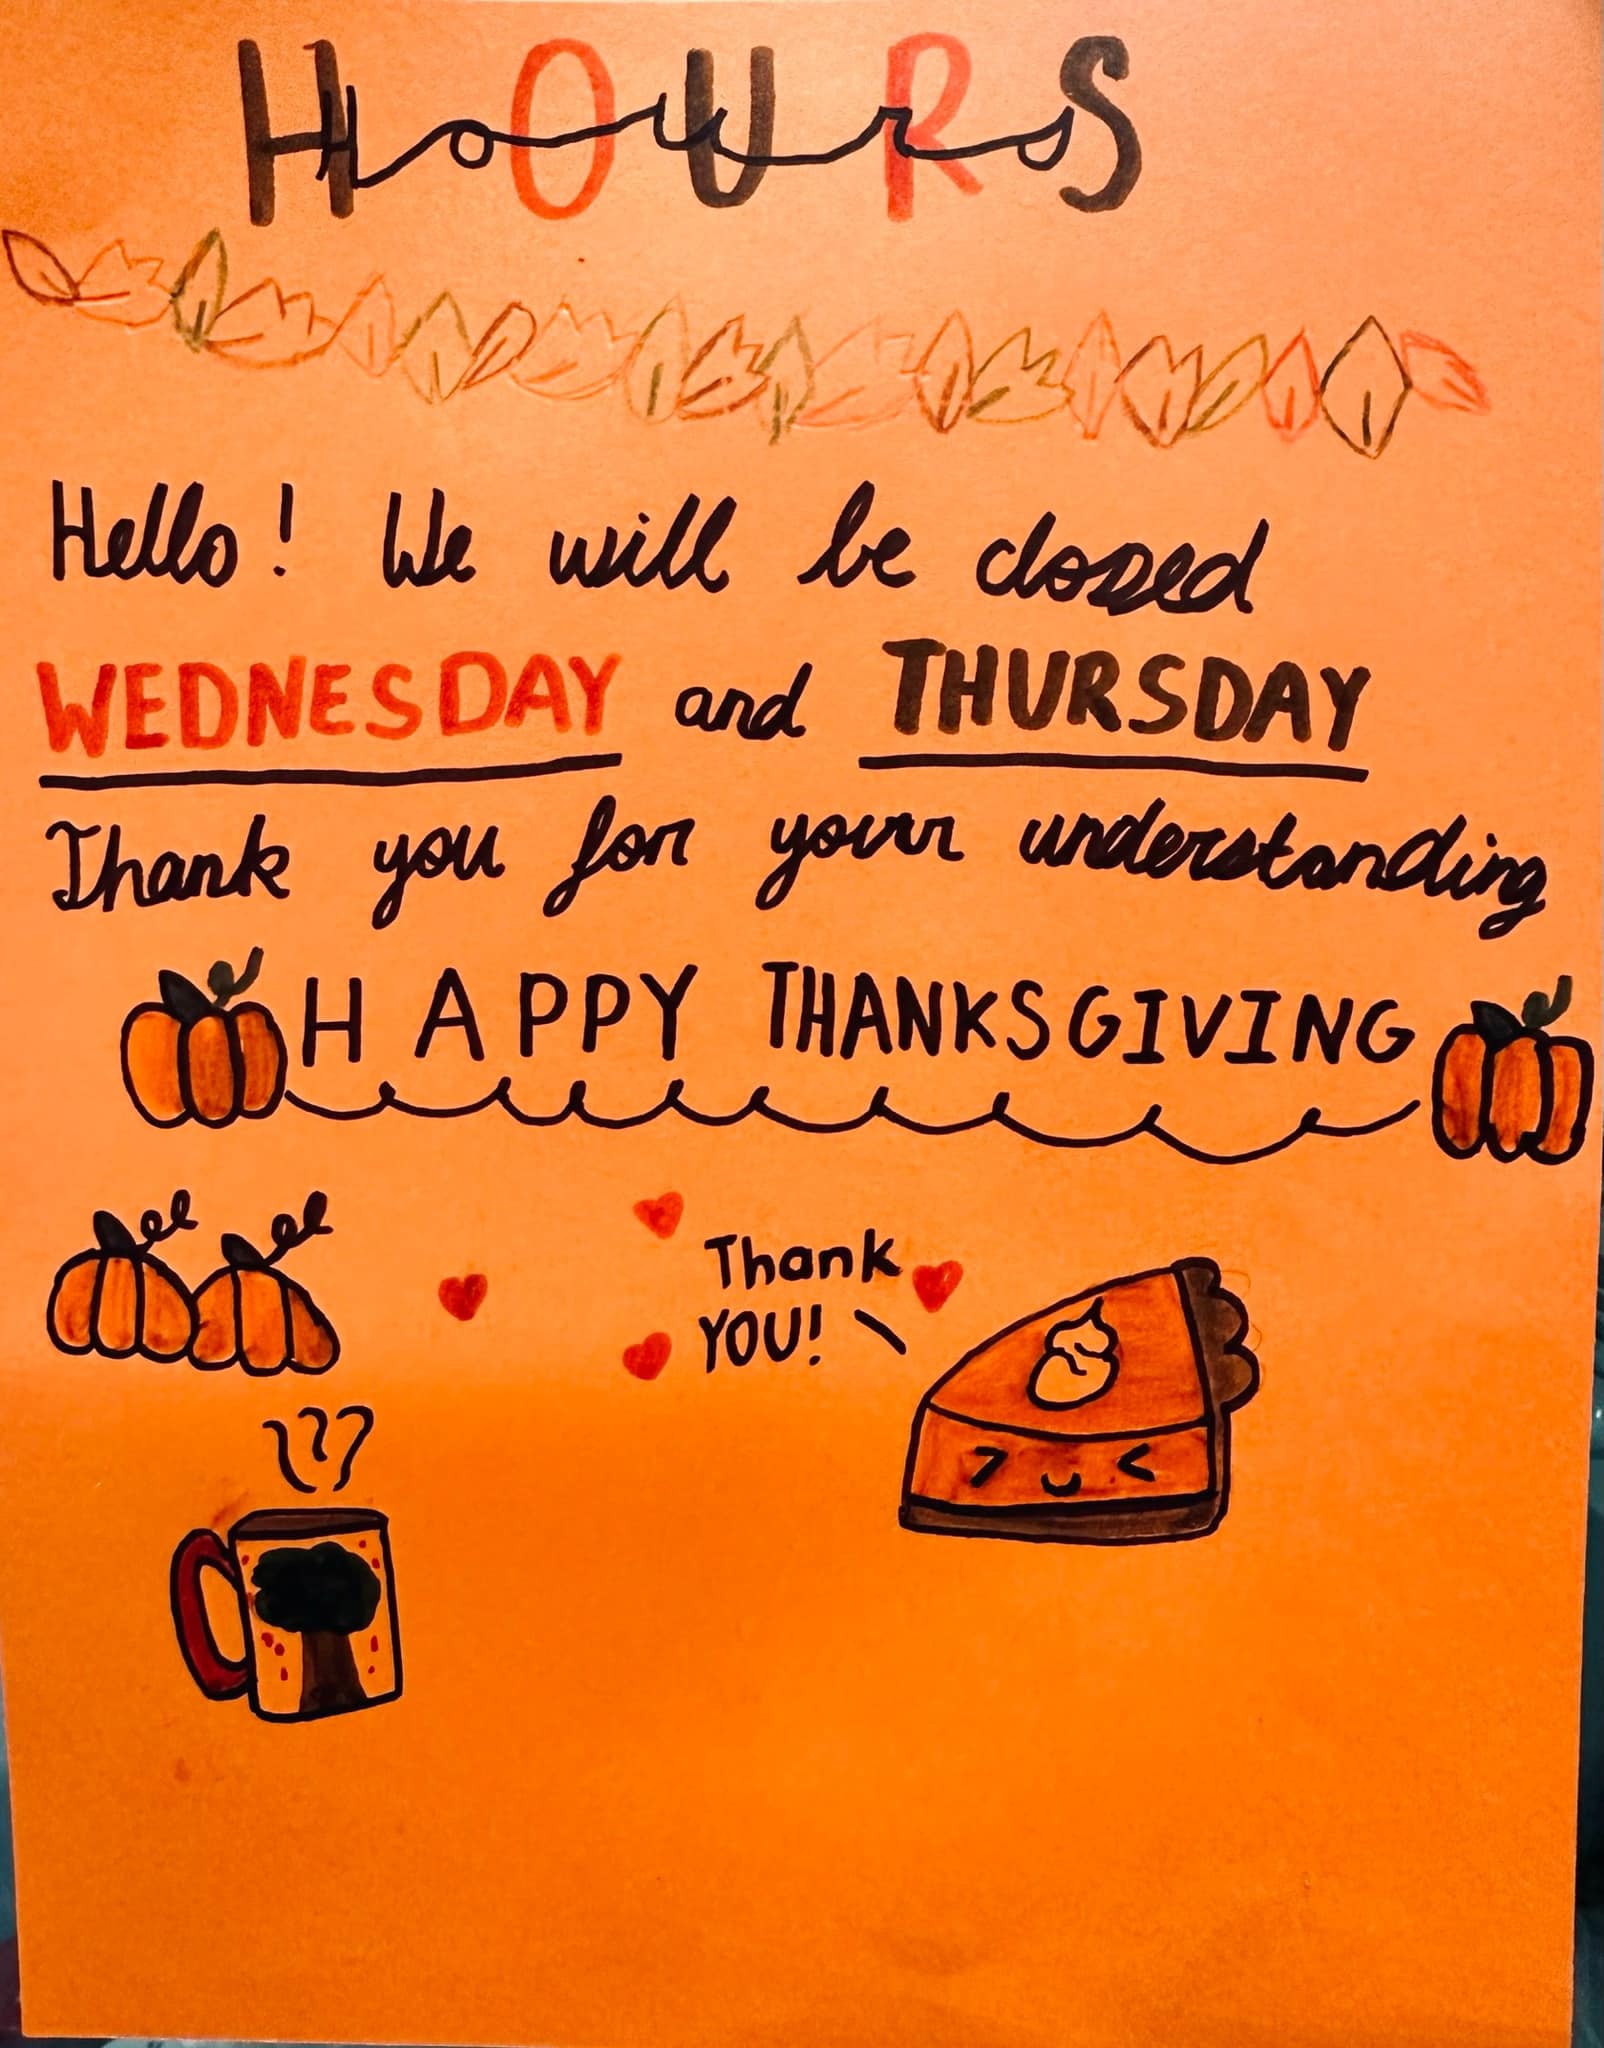 HOURS
Hours
Hello! We will be closed
WEDNESDAY and THURSDAY
Thank you for your understanding
HAPPY THANKSGIVING
Thank
YOU!